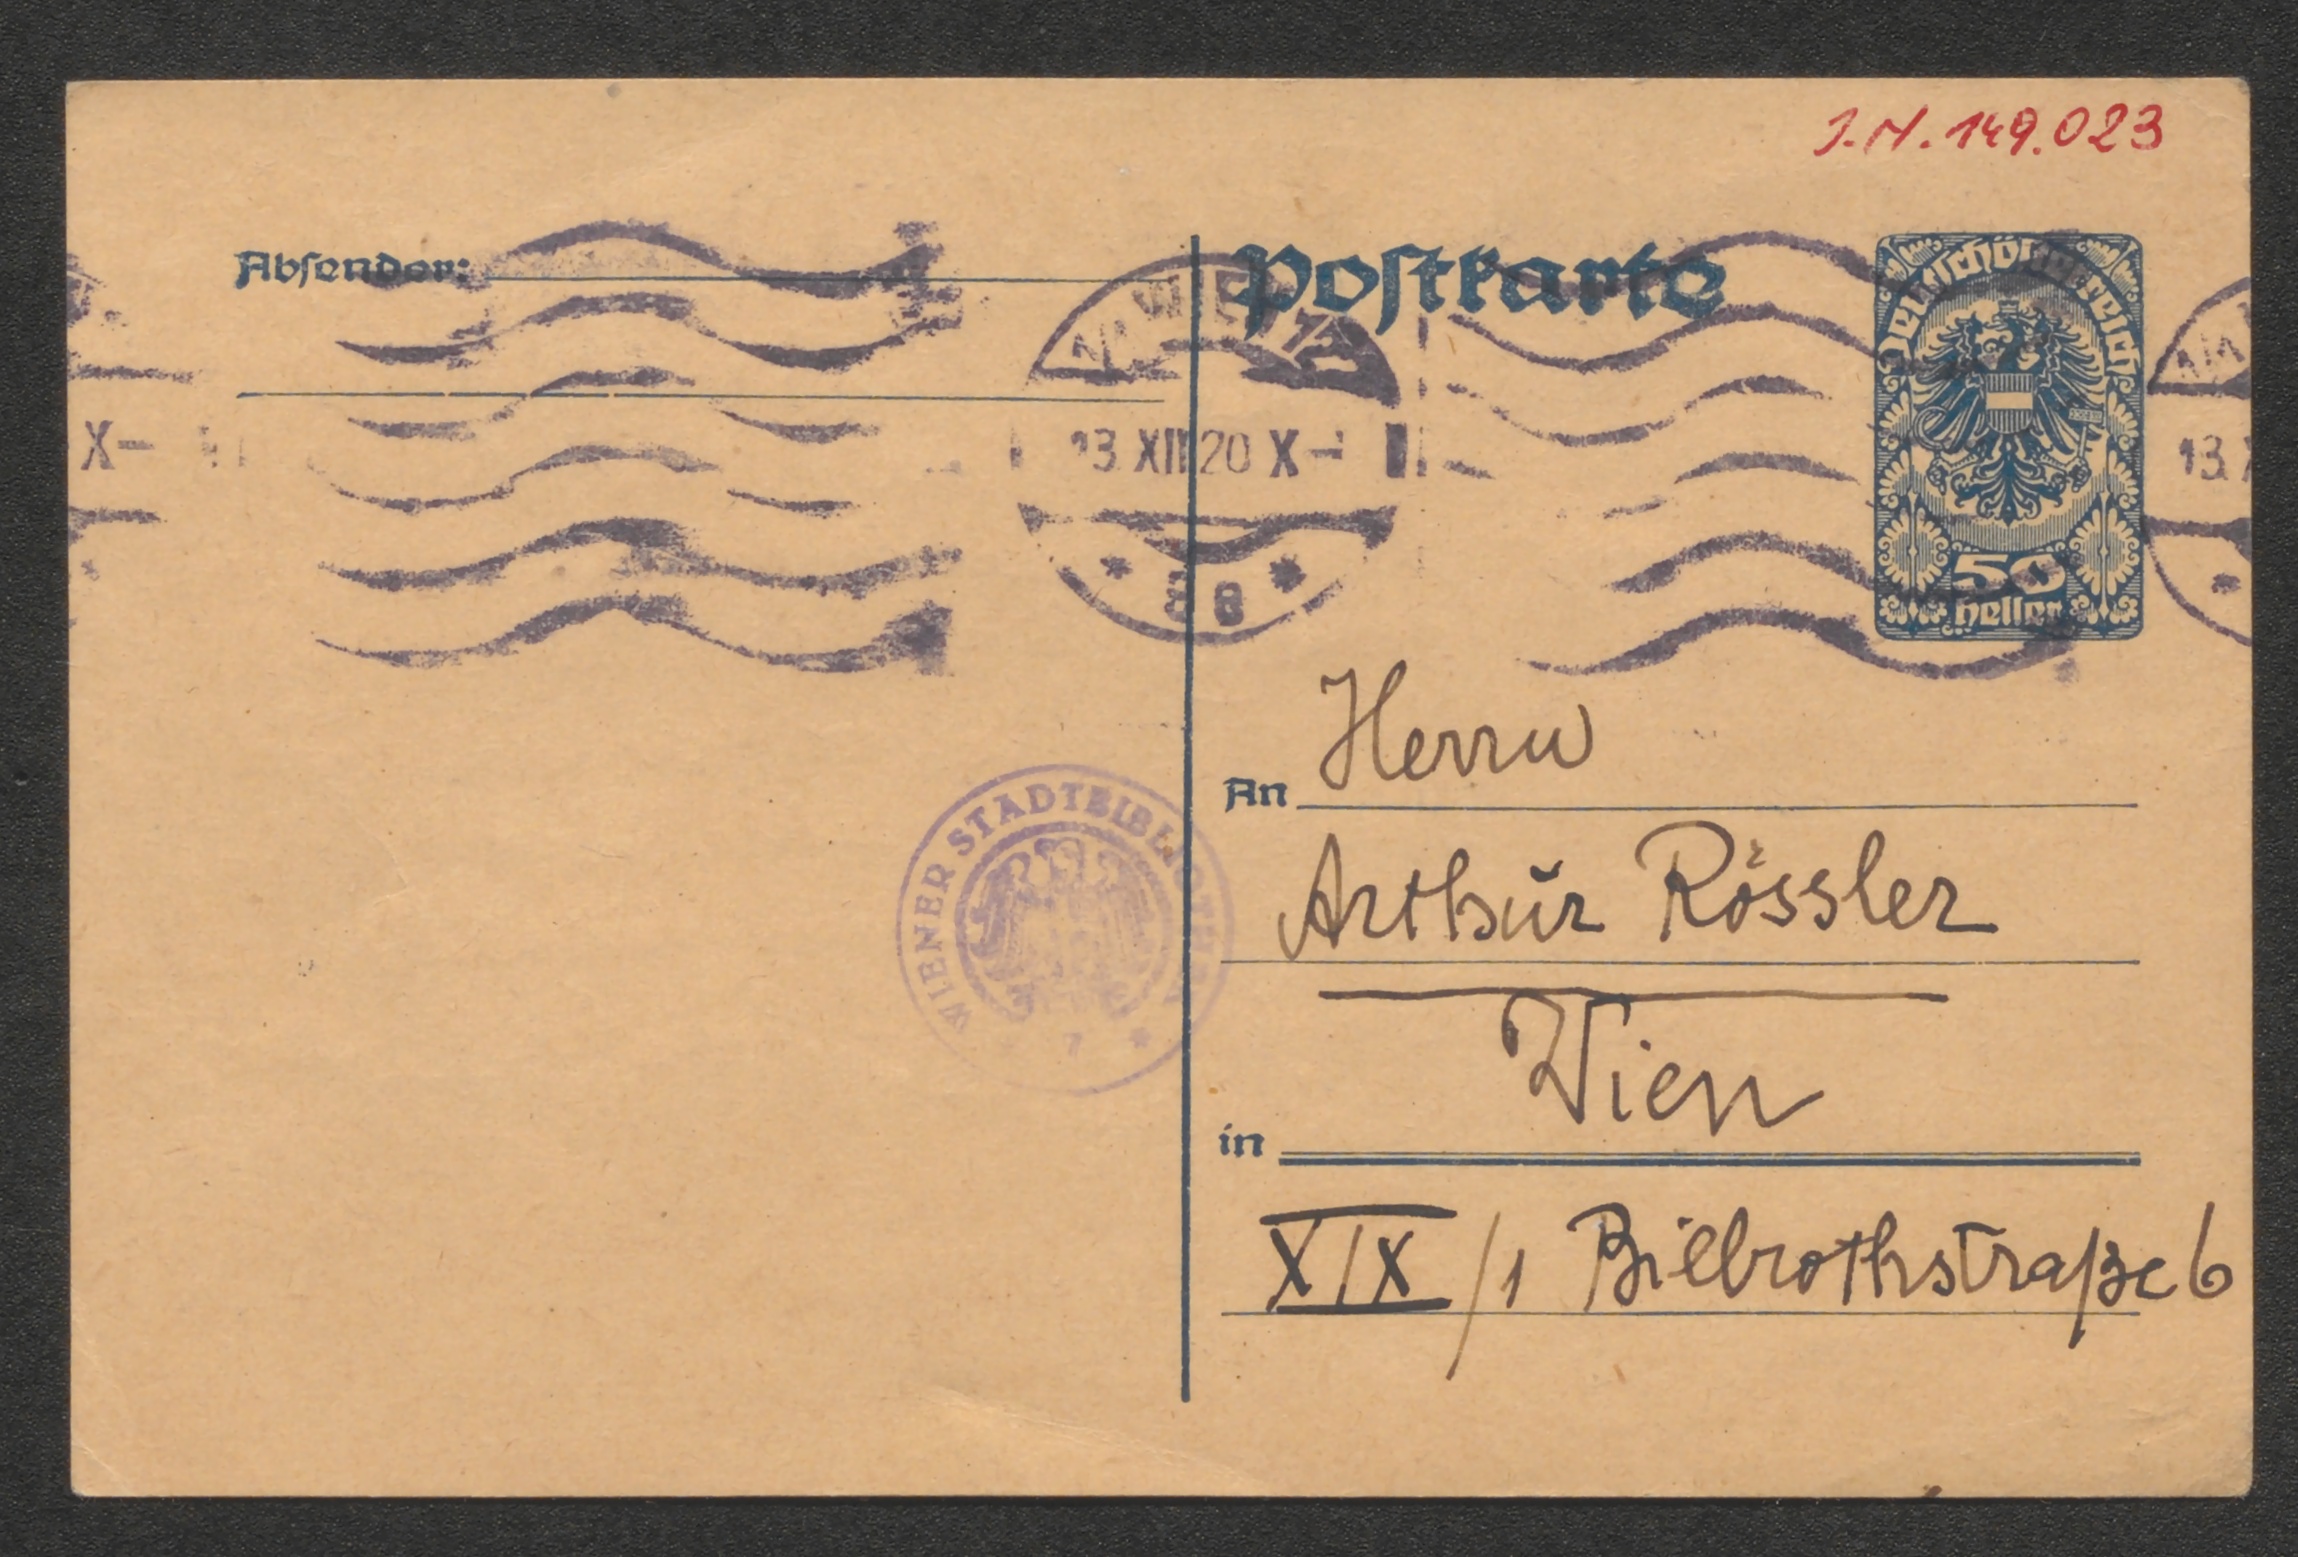 J.N. 149.023
Absender:
Postkarte
Deutschösterreich
50
Heller
WIEN
13.XII.20 X-
* 8 8 *
X-
13.X
WIENER STADTBIBLIOTHEK
7 *
An Herrn
Arthur Rössler
in Wien
XIX/1 Billrothstraße 6